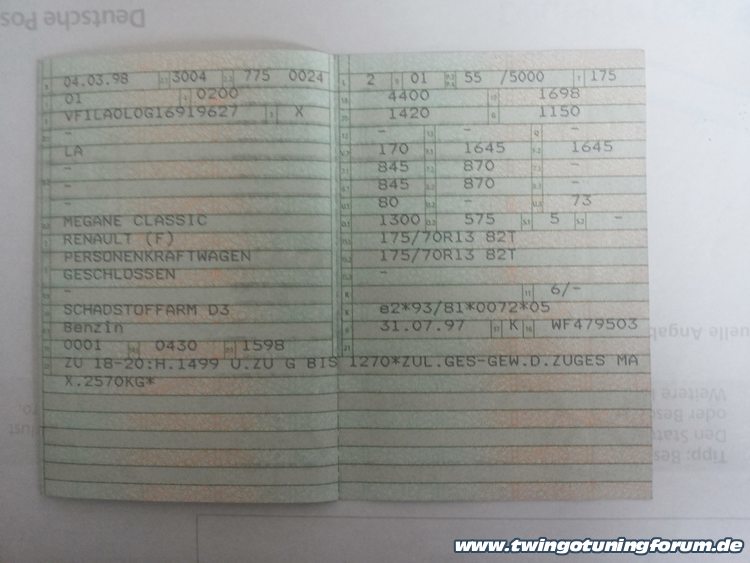 Deutsche Pos
04.03.98 3004 775 0024
01 0200
VF1LA0L0G16919627 X
-
LA -
-
-
-
MEGANE CLASSIC
RENAULT (F)
PERSONENKRAFTWAGEN
GESCHLOSSEN
-
SCHADSTOFFARM D3
Benzin
0001 0430 1598
2 01 55 /5000 175
4400 1698
1420 1150
- - -
170 1645 1645
845 870 -
845 870 -
80 - 73
1300 575 5 -
175/70R13 82T
175/70R13 82T
-
6/-
e2*93/81*0072*05
31.07.97 K WF479503
ZU 18-20:H.1499 U.ZU G BIS 1270*ZUL.GES-GEW.D.ZUGES MA
X.2570KG*
uelle Angab
Weitere
oder Bes
Den Stat
Tipp: Bes
www.twingotuningforum.de